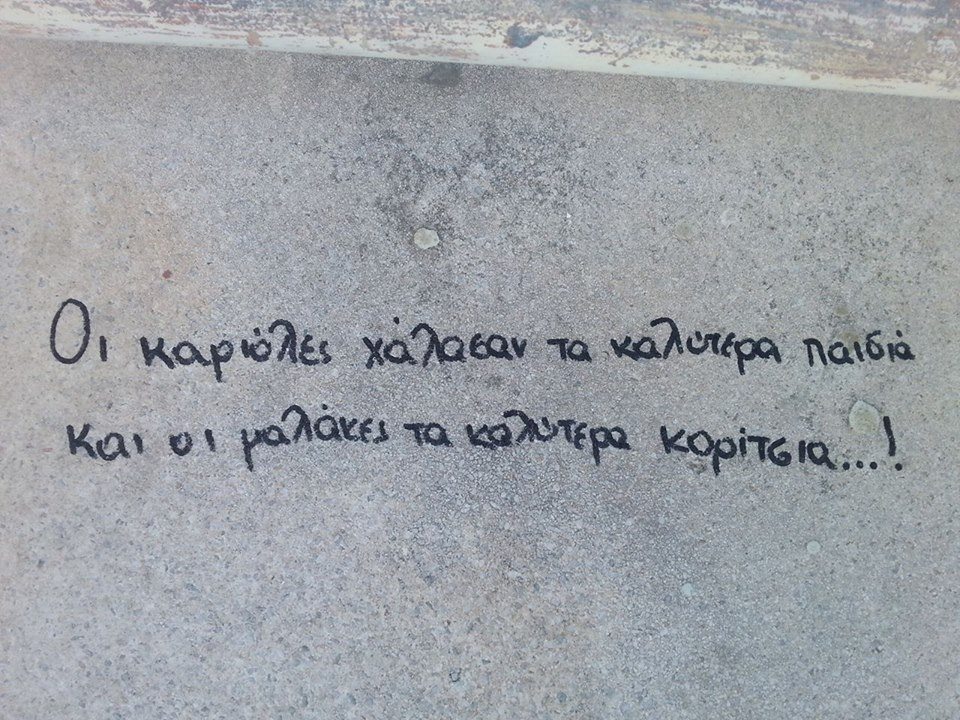 Οι καριόλες χάλασαν τα καλύτερα παιδιά
και οι μαλάκες τα καλύτερα κορίτσια...!